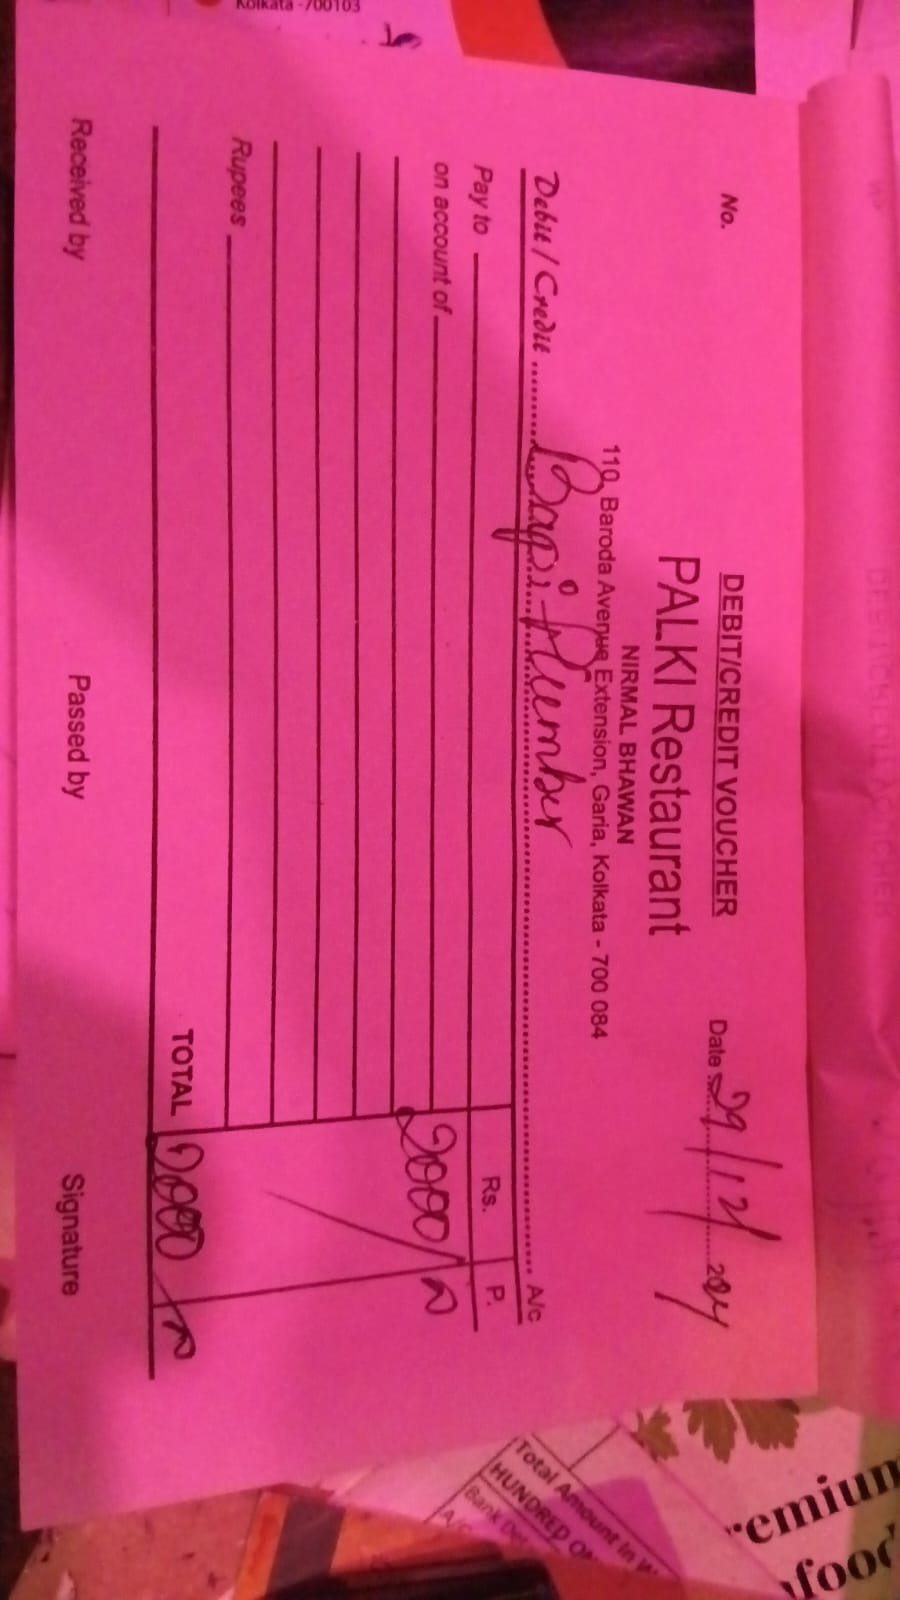 Kolkata -700103
DEBIT/CREDIT VOUCHER
No.
Date 29/12/2024
PALKI Restaurant
NIRMAL BHAWAN
110, Baroda Avenue Extension, Garia, Kolkata - 700 084
Debit / Credit Bapi Plumber A/c
Pay to Rs. P.
on account of
2000/
Rupees
TOTAL 2000
Received by Passed by Signature
Total Amount In
HUNDRED
Bank
A/c
remium